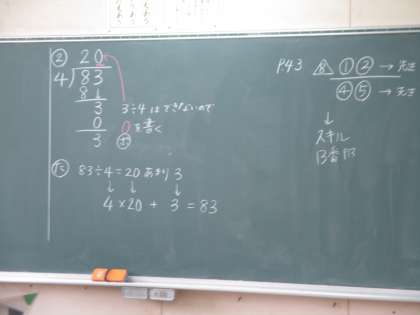 ② 20
4)83
8↓
3
0
3
3÷4はできないので
0を書く
た 83÷4=20あまり3
↓ ↓ ↓
4×20 + 3 = 83
P.43 ①② →先き
④⑤ →
↓
スキル
13番